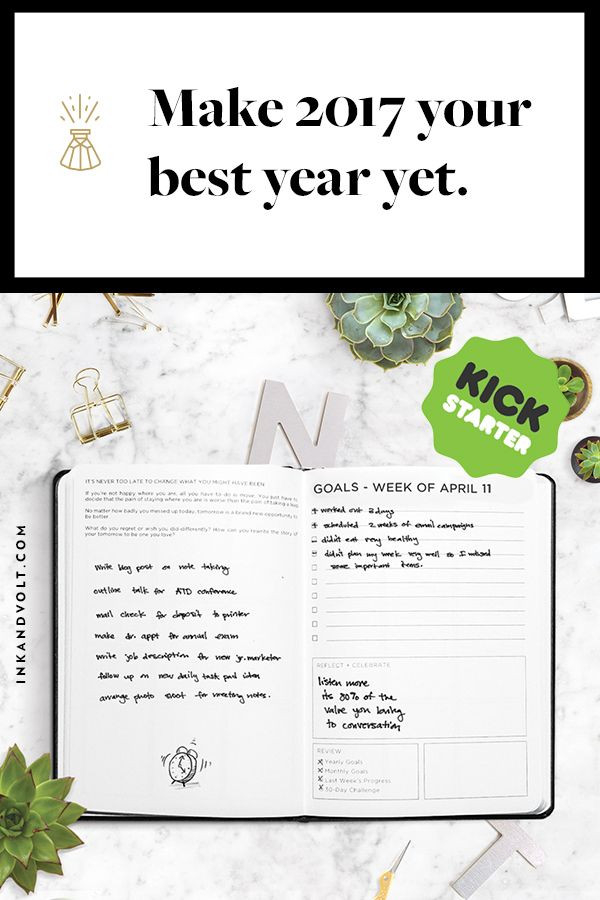 Make 2017 your
best year yet.
KICK
STARTER
N
INKANDVOLT.COM
IT'S NEVER TOO LATE TO CHANGE WHAT YOU MIGHT HAVE BEEN
If you're not happy where you are, all you have to do is move. You just have to
decide that the pain of staying where you are is worse than the pain of taking a leap.
No matter how badly you messed up today, tomorrow is a brand new opportunity to
be better.
What do you regret or wish you did differently? How can you rewrite the story of
your tomorrow to be one you love?
write blog post on note taking
outline talk for ATD conference
mail check for deposit to printer
make dr. appt for annual exam
write job description for new jr. marketer
follow up on new daily task pad idea
arrange photo shoot for meeting notes.
GOALS - WEEK OF APRIL 11
+ worked out 3 days
+ scheduled 2 weeks of email campaigns
- didn't eat very healthy
- didn't plan my week very well so I missed
some important items.
REFLECT + CELEBRATE
listen more
its 80% of the
value you bring
to conversation
REVIEW
x Yearly Goals
x Monthly Goals
x Last Week's Progress
x 30-Day Challenge
T